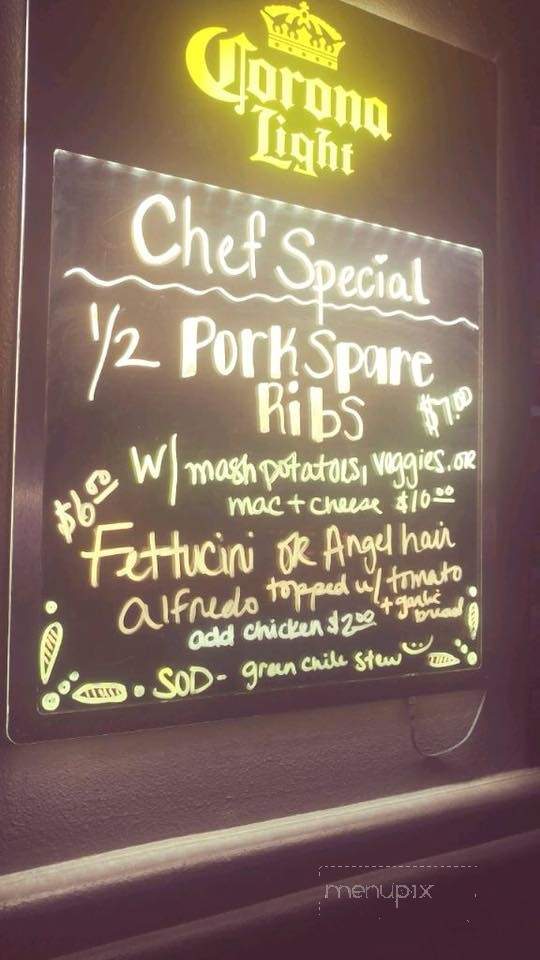 Corona
Light
Chef Special
1/2 Pork Spare
Ribs
$7.00
W/ mashpotatoes, veggies. or
mac + cheese $10.00
$6.00
Fettucini or Angel hair
alfredo topped w/ tomato
+ garlic bread
add chicken $2.00
SOD - green chile stew
menupix